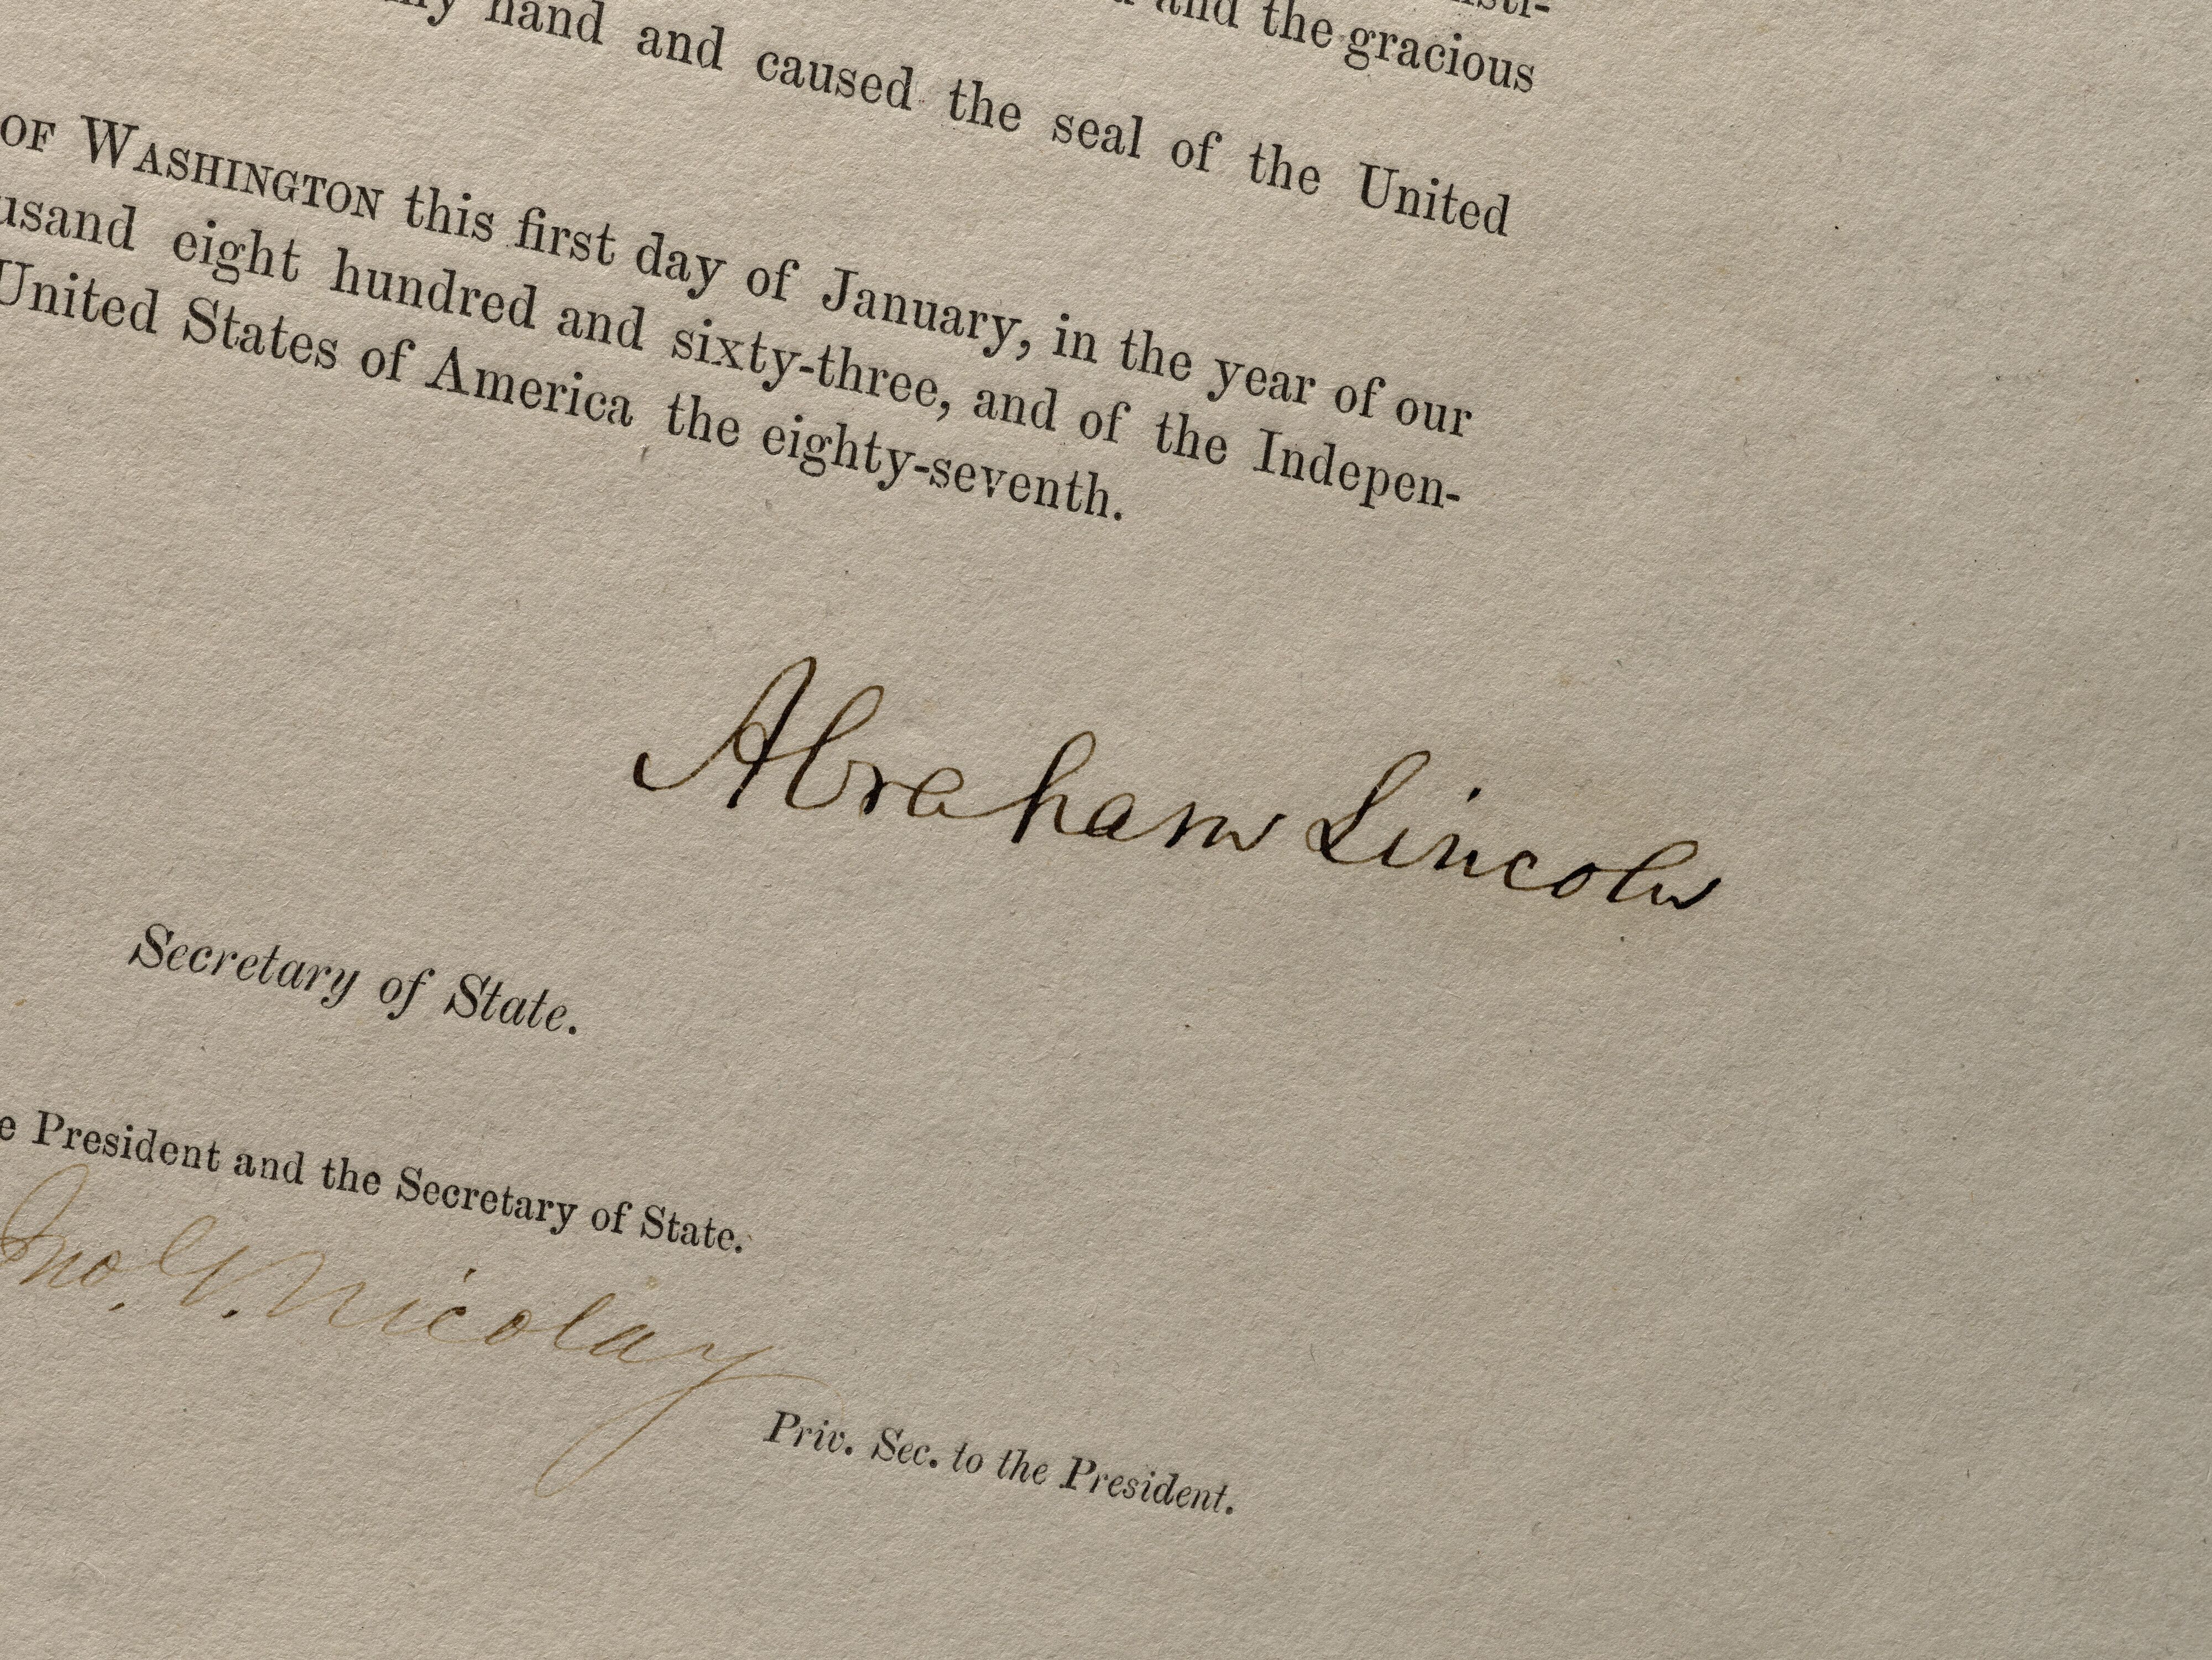 and the gracious
hand and caused the seal of the United
OF WASHINGTON this first day of January, in the year of our
eight hundred and sixty-three, and of the Indepen-
United States of America the eighty-seventh.
Abraham Lincoln
Secretary of State.
President and the Secretary of State.
Jno. G. Nicolay
Priv. Sec. to the President.